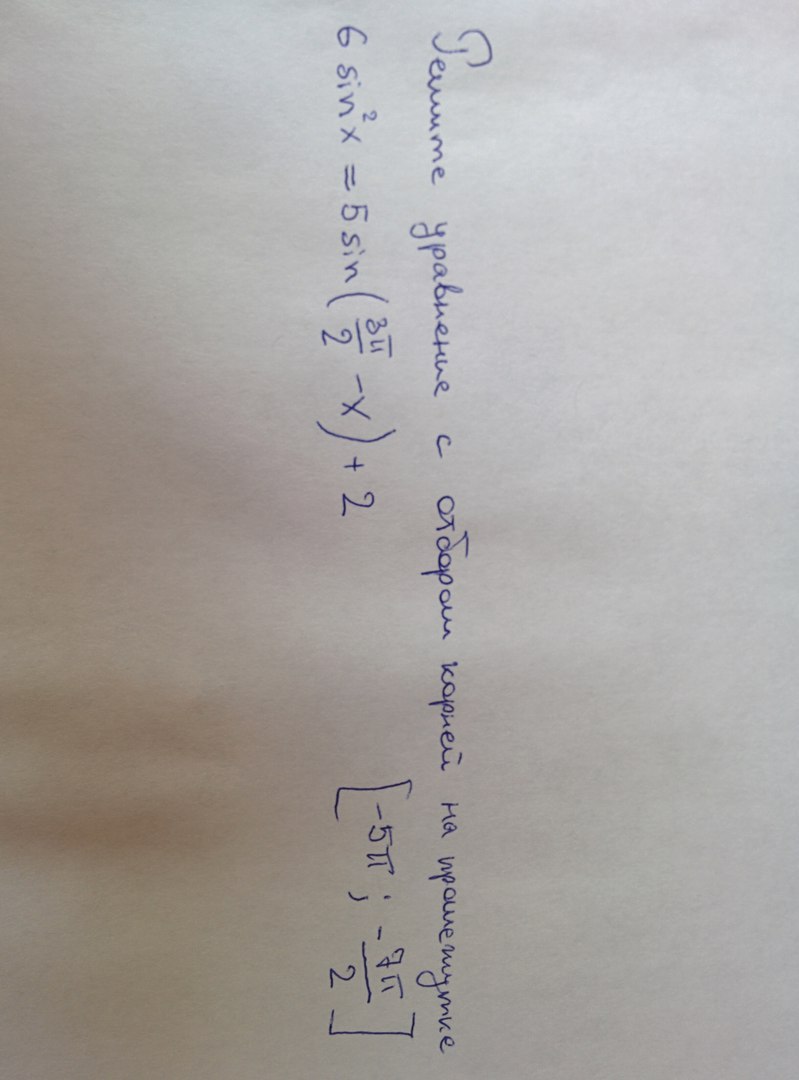 Решите уравнение с отбором корней на промежутке
6 sin²x = 5 sin(3π/2 - x) + 2 [-5π ; -7π/2]